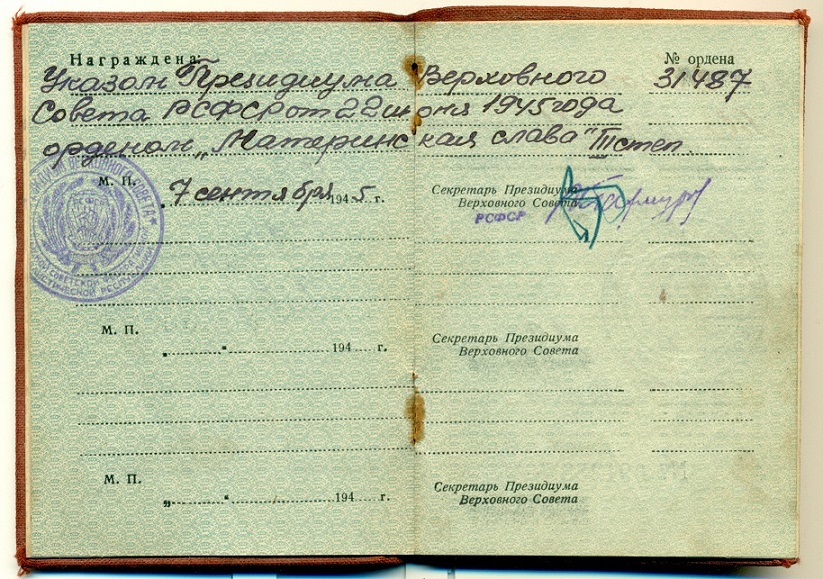 Награждена: № ордена
Указом Президиума Верховного 31487
Совета РСФСР от 22 июня 1945 года
орденом „Материнская слава" III степ.
М. П. „7 сентября 1945 г. Секретарь Президиума
Верховного Совета
РСФСР
М. П. Секретарь Президиума
„ " 194 г. Верховного Совета
М. П. Секретарь Президиума
„ " 194 г. Верховного Совета